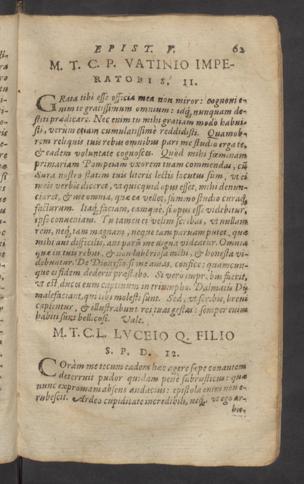 EPIST. V. 62
M. T. C. P. VATINIO IMPE-
RATORI S. II.
GRata tibi esse officia mea non miror: cognoui e-
nim te gratissimum omnium: idq; nunquam de-
stiti prædicare. Nec enim tu mihi gratiam modo habui-
sti, verum etiam cumulatissimè reddidisti. Quamob-
rem reliquis tuis rebus omnibus pari me studio erga te,
& eadem voluntate cognosces. Quod mihi fœminam
primariam Pompeiam vxorem tuam commendas, cũ
Sura nostro statim tuis literis lectis locutus sum, vt ei
meis verbis diceret, vt quicquid opus esset, mihi denun-
ciaret, & me omnia, quæ ea vellet, summo studio curaq́;
facturum. Itaq; faciam, eamq́ue, si opus esse videbitur,
ipse conueniam. Tu tamen ei velim scribas, vt nullam
rem, neq; tam magnam, neque tam paruam putet, quæ
mihi aut difficilis, aut parũ me digna videatur. Omnia
quæ in tuis rebus, & non laboriosa mihi, & honesta vi-
debuntur. De Dionysio si me amas, confice: quamcun-
que ei fidem dederis præstabo. Si vero improbus fuerit,
vt est, duces eum captiuum in triumpho. Dalmatis Dij
malefaciant, qui tibi molesti sunt. Sed, vt scribis, breui
capientur, & illustrabunt res tuas gestas: semper enim
habiti sunt bellicosi. Vale.
M. T. C. L. LVCEIO Q. FILIO
S. P. D. 12.
COràm me tecum eadem hæc agere sæpe conantem
deterruit pudor quidam penè subrusticus: quæ
nunc expromam absens audacius: epistola enim non e-
rubescit. Ardeo cupiditate incredibili, neq; vt ego ar-
bi-